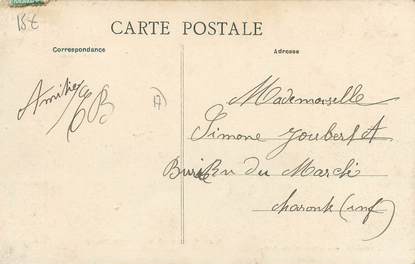 15€
CARTE POSTALE
Correspondance
Adresse
Amitiés
EB
A
Mademoiselle
Simone Joubert A
Burie Rue du Marché
(inf)